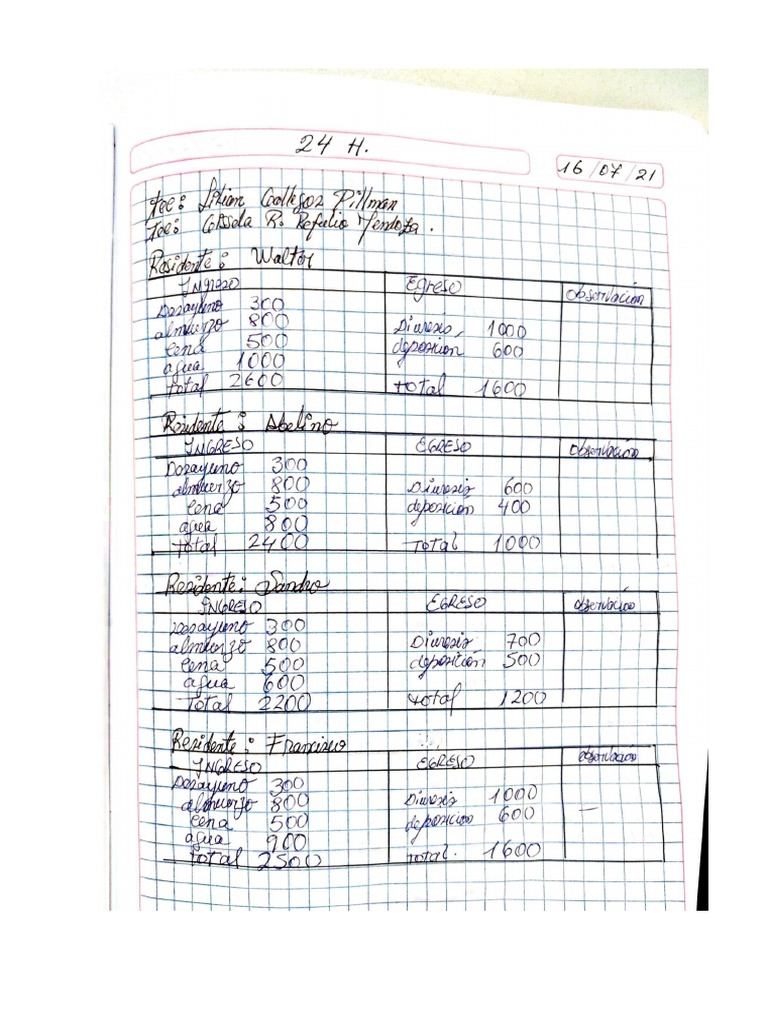 24 H.
16/07/21
Tec: Lilian Gallegos Pillman
Tec: R. Refulio Mendoza.
Residente: Walter
INGreso Egreso Observación
Desayuno 300
almuerzo 800 Diuresis 1000
cena 500 deposicion 600
agua 1000
total 2600 total 1600
Residente: Abelino
INGRESO EGRESO Observación
Desayuno 300
almuerzo 800 Diuresis 600
cena 500 deposicion 400
agua 800
Total 2400 Total 1000
Residente: Sandro
INGRESO EGRESO observación
Desayuno 300
almuerzo 800 Diuresis 700
cena 500 deposición 500
agua 600
Total 2200 total 1200
Residente: Francisco
INGRESO EGRESO observación
Desayuno 300
almuerzo 800 Diuresis 1000
cena 500 deposicion 600 —
agua 900
total 2500 total. 1600